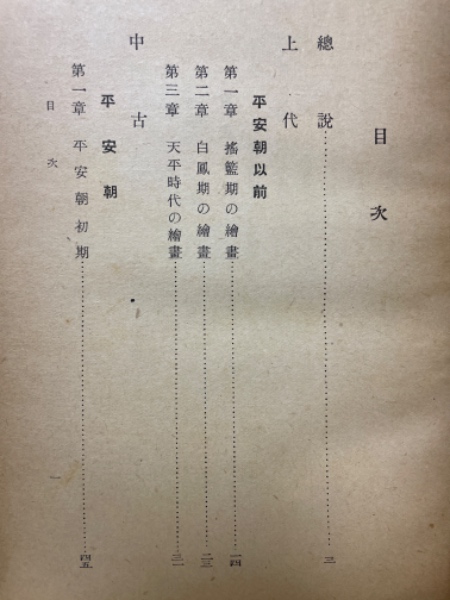 目次
總說……三
上代
平安朝以前
第一章 搖籃期の繪畫……一四
第二章 白鳳期の繪畫……二三
第三章 天平時代の繪畫……三一
中古
平安朝
第一章 平安朝初期……四五
目次 一